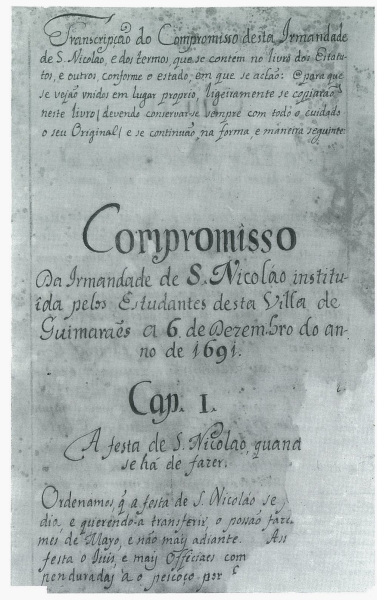 Transcripção do Compromisso desta Irmandade
de S. Nicolao, e dos termos, que se contem no livro dos Estatu-
tos, e outros, conforme o estado, em que se aclão: E para que
se vejão vnidos em lugar proprio, ligeiramente se copiarão
neste livro (devendo conservar-se sempre com todo o cuidado
o seu Original) e se continuão na forma, e maneira seguinte:
Compromisso
Da Irmandade de S. Nicoláo institu-
ida pelos Estudantes desta Villa de
Guimaraẽs a 6 de Dezembro do an-
no de 1691.
Cap. I.
A festa de S. Nicolao, quand
se há de fazer.
Ordenamos, q̃ a festa de S. Nicoláo se
dia, e querendo-a transferir, o possão faze
mes de Mayo, e não mais adiante.
festa o Juis, e mais Officiaes com
penduradas a o pescoço, por